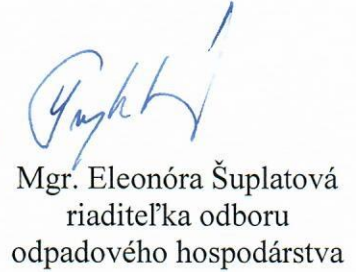 Mgr. Eleonóra Šuplatová
riaditeľka odboru
odpadového hospodárstva